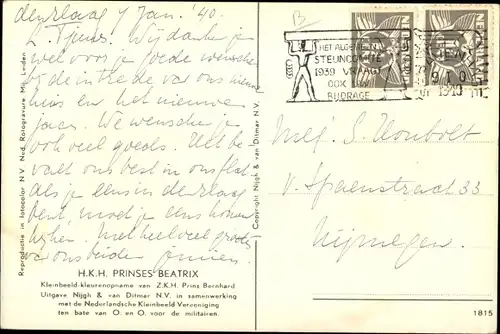 den Haag 7 Jan. '40.
L. Wij danken je
wel voor je goede wenschen
bij de intrede van ons nieuwe
huis en het nieuwe
jaar. We wenschen je
ook veel goeds. Het be-
valt ons best in ons flat.
Als je eens in den Haag
bent, moet je eens komen
kijken. Met heel veel groeten
van ons beiden
H.K.H. PRINSES BEATRIX
Kleinbeeld-kleurenopname van Z.K.H. Prins Bernhard
Uitgave Nijgh & van Ditmar N.V. in samenwerking
met de Nederlandsche Kleinbeeld Vereeniging
ten bate van O. en O. voor de militairen.
Reproductie in fotocolor N.V. Ned. Rotogravure Mij. Leiden
Copyright Nijgh & van Ditmar N.V.
B
HET ALGEMEEN
STEUNCOMITE
1939 VRAAGT
OOK UW
BIJDRAGE
NEDERLAND
NEDERLAND
1940
Mej. S.
v. Spaenstraat 33
Nijmegen.
1815